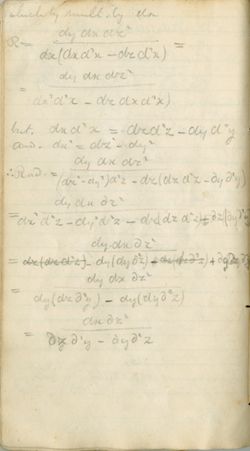 which by mult. by dx
dy dx dz²
R = ――――― =
dx(dx d²z – dz d²x)
dy dx dz²
= ―――――
dx² d²z – dz dx d²x)
but. dx d²x = dz d²z – dy d²y
and. dx² = dz² – dy²
dy dx dz²
∴ Rad. = ―――――
(dz² – dy²) d²z – dz(dz d²z – dy d²y)
dy dx dz²
= ―――――
dz² d²z – dy² d²z – dz(dz d²z) + dz(dy d²y)
dy dx dz²
= ―――――
dy dx dz²
= ―――――
dy(dz d²y) – dy(dy d²z)
dx dz²
= ―――――
dz d²y – dy d²z